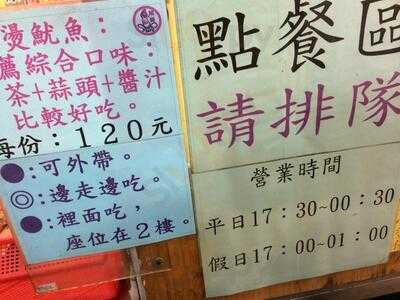 燙魷魚：
薦綜合口味：
茶+蒜頭+醬汁
比較好吃。
每份：120元
●：可外帶。
◎：邊走邊吃。
●：裡面吃，
座位在2樓。
點餐區
請排隊
營業時間
平日17：30~00：30
假日17：00~01：00